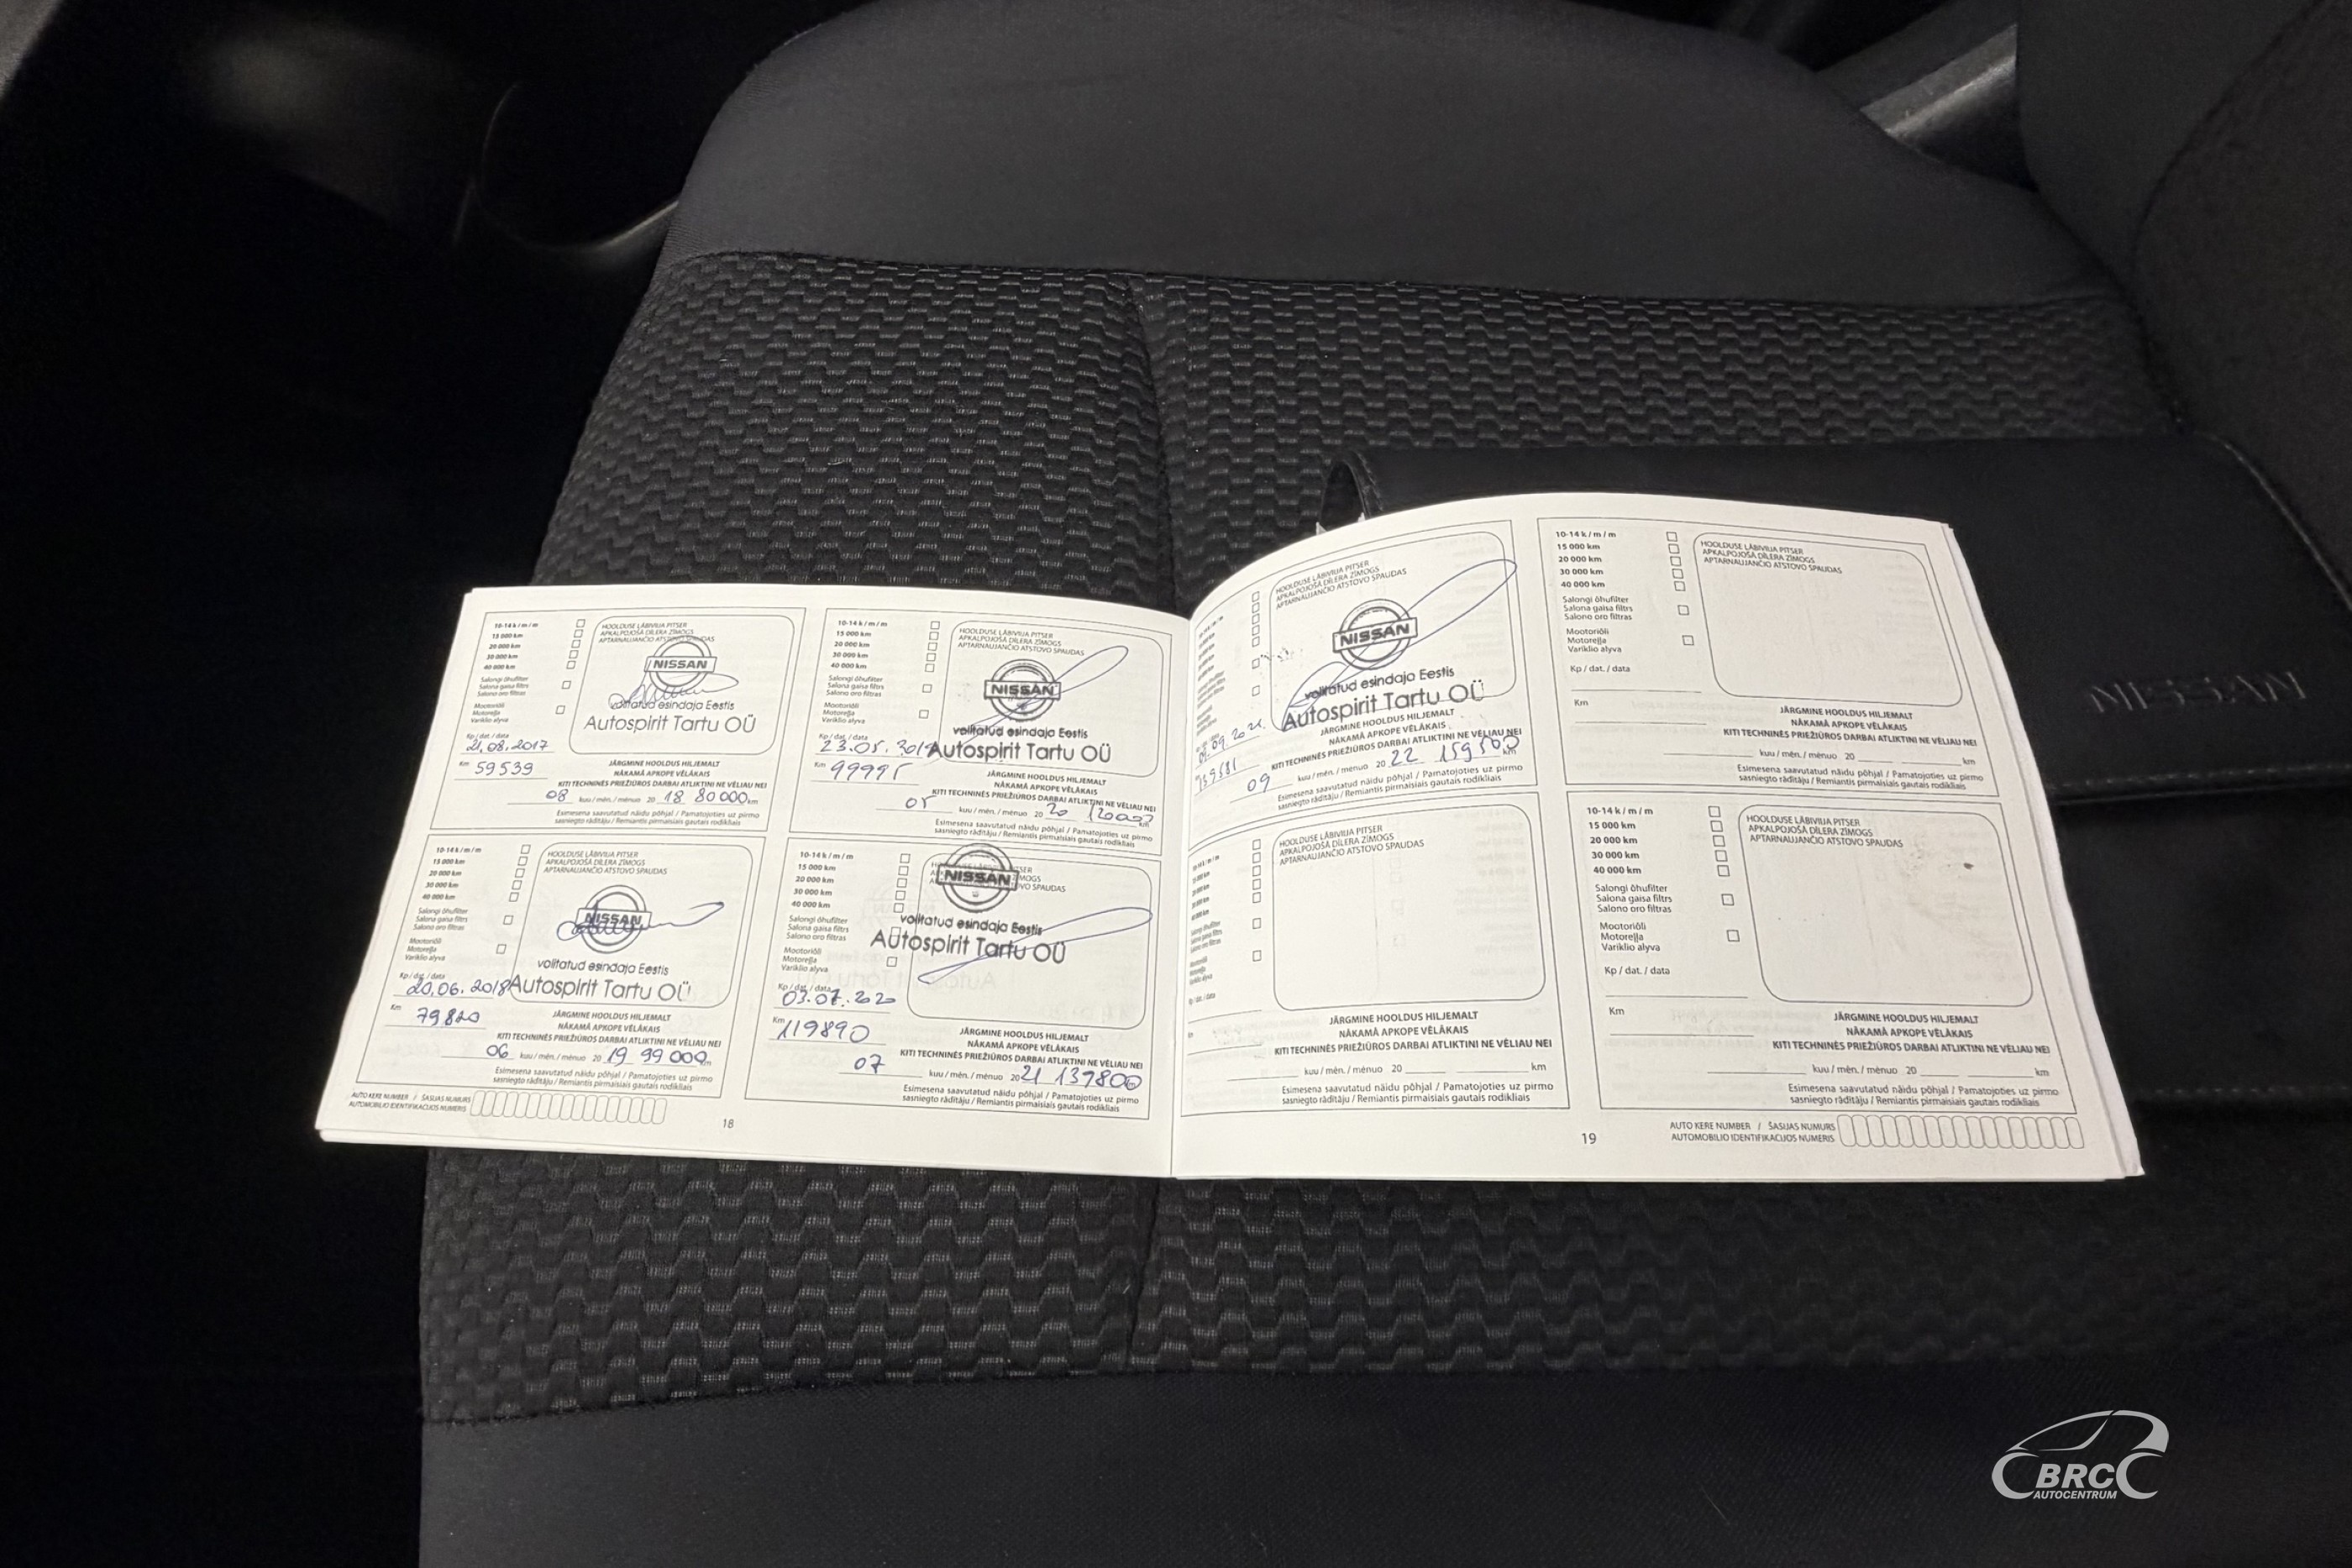 10-14 k / m / m
15 000 km
20 000 km
30 000 km
40 000 km
Salongi õhufilter
Salona gaisa filtrs
Salono oro filtras
Mootoriõli
Motoreļļa
Variklio alyva
HOOLDUSE LÄBIVIIJA PITSER
APKALPOJOŠĀ DĪLERA ZĪMOGS
APTARNAUJANČIO ATSTOVO SPAUDAS
NISSAN
volitatud esindaja Eestis
Autospirit Tartu OÜ
Kp / dat. / data
21.08.2017
Km 59539
JÄRGMINE HOOLDUS HILJEMALT
NĀKAMĀ APKOPE VĒLĀKAIS
KITI TECHNINĖS PRIEŽIŪROS DARBAI ATLIKTINI NE VĖLIAU NEI
08 kuu / mēn. / mėnuo 20 18 80000 km
Esimesena saavutatud näidu põhjal / Pamatojoties uz pirmo
sasniegto rādītāju / Remiantis pirmaisiais gautais rodikliais
10-14 k / m / m
15 000 km
20 000 km
30 000 km
40 000 km
Salongi õhufilter
Salona gaisa filtrs
Salono oro filtras
Mootoriõli
Motoreļļa
Variklio alyva
HOOLDUSE LÄBIVIIJA PITSER
APKALPOJOŠĀ DĪLERA ZĪMOGS
APTARNAUJANČIO ATSTOVO SPAUDAS
NISSAN
volitatud esindaja Eestis
Autospirit Tartu OÜ
Kp / dat. / data
20.06.2018
Km 79820
JÄRGMINE HOOLDUS HILJEMALT
NĀKAMĀ APKOPE VĒLĀKAIS
KITI TECHNINĖS PRIEŽIŪROS DARBAI ATLIKTINI NE VĖLIAU NEI
06 kuu / mēn. / mėnuo 20 19 99000 km
Esimesena saavutatud näidu põhjal / Pamatojoties uz pirmo
sasniegto rādītāju / Remiantis pirmaisiais gautais rodikliais
AUTO KERE NUMBER / ŠASIJAS NUMURS
AUTOMOBILIO IDENTIFIKACIJOS NUMERIS
10-14 k / m / m
15 000 km
20 000 km
30 000 km
40 000 km
Salongi õhufilter
Salona gaisa filtrs
Salono oro filtras
Mootoriõli
Motoreļļa
Variklio alyva
HOOLDUSE LÄBIVIIJA PITSER
APKALPOJOŠĀ DĪLERA ZĪMOGS
APTARNAUJANČIO ATSTOVO SPAUDAS
NISSAN
volitatud esindaja Eestis
Autospirit Tartu OÜ
Kp / dat. / data
23.05.
Km 99995
JÄRGMINE HOOLDUS HILJEMALT
NĀKAMĀ APKOPE VĒLĀKAIS
KITI TECHNINĖS PRIEŽIŪROS DARBAI ATLIKTINI NE VĖLIAU NEI
05 kuu / mēn. / mėnuo 20 20 km
Esimesena saavutatud näidu põhjal / Pamatojoties uz pirmo
sasniegto rādītāju / Remiantis pirmaisiais gautais rodikliais
10-14 k / m / m
15 000 km
20 000 km
30 000 km
40 000 km
Salongi õhufilter
Salona gaisa filtrs
Salono oro filtras
Mootoriõli
Motoreļļa
Variklio alyva
NISSAN
volitatud esindaja Eestis
Autospirit Tartu OÜ
Kp / dat. / data
03.07.2020
Km 119890
JÄRGMINE HOOLDUS HILJEMALT
NĀKAMĀ APKOPE VĒLĀKAIS
KITI TECHNINĖS PRIEŽIŪROS DARBAI ATLIKTINI NE VĖLIAU NEI
07 kuu / mēn. / mėnuo 20 21 139800
Esimesena saavutatud näidu põhjal / Pamatojoties uz pirmo
sasniegto rādītāju / Remiantis pirmaisiais gautais rodikliais
18
HOOLDUSE LÄBIVIIJA PITSER
APKALPOJOŠĀ DĪLERA ZĪMOGS
APTARNAUJANČIO ATSTOVO SPAUDAS
NISSAN
volitatud esindaja Eestis
Autospirit Tartu OÜ
139581
JÄRGMINE HOOLDUS HILJEMALT
NĀKAMĀ APKOPE VĒLĀKAIS
KITI TECHNINĖS PRIEŽIŪROS DARBAI ATLIKTINI NE VĖLIAU NEI
09 kuu / mēn. / mėnuo 20 22 159500 km
Esimesena saavutatud näidu põhjal / Pamatojoties uz pirmo
sasniegto rādītāju / Remiantis pirmaisiais gautais rodikliais
HOOLDUSE LÄBIVIIJA PITSER
APKALPOJOŠĀ DĪLERA ZĪMOGS
APTARNAUJANČIO ATSTOVO SPAUDAS
JÄRGMINE HOOLDUS HILJEMALT
NĀKAMĀ APKOPE VĒLĀKAIS
KITI TECHNINĖS PRIEŽIŪROS DARBAI ATLIKTINI NE VĖLIAU NEI
kuu / mēn. / mėnuo 20 km
Esimesena saavutatud näidu põhjal / Pamatojoties uz pirmo
sasniegto rādītāju / Remiantis pirmaisiais gautais rodikliais
10-14 k / m / m
15 000 km
20 000 km
30 000 km
40 000 km
Salongi õhufilter
Salona gaisa filtrs
Salono oro filtras
Mootoriõli
Motoreļļa
Variklio alyva
HOOLDUSE LÄBIVIIJA PITSER
APKALPOJOŠĀ DĪLERA ZĪMOGS
APTARNAUJANČIO ATSTOVO SPAUDAS
Kp / dat. / data
Km
JÄRGMINE HOOLDUS HILJEMALT
NĀKAMĀ APKOPE VĒLĀKAIS
KITI TECHNINĖS PRIEŽIŪROS DARBAI ATLIKTINI NE VĖLIAU NEI
kuu / mēn. / mėnuo 20 km
Esimesena saavutatud näidu põhjal / Pamatojoties uz pirmo
sasniegto rādītāju / Remiantis pirmaisiais gautais rodikliais
10-14 k / m / m
15 000 km
20 000 km
30 000 km
40 000 km
Salongi õhufilter
Salona gaisa filtrs
Salono oro filtras
Mootoriõli
Motoreļļa
Variklio alyva
HOOLDUSE LÄBIVIIJA PITSER
APKALPOJOŠĀ DĪLERA ZĪMOGS
APTARNAUJANČIO ATSTOVO SPAUDAS
Kp / dat. / data
Km
JÄRGMINE HOOLDUS HILJEMALT
NĀKAMĀ APKOPE VĒLĀKAIS
KITI TECHNINĖS PRIEŽIŪROS DARBAI ATLIKTINI NE VĖLIAU NEI
kuu / mēn. / mėnuo 20 km
Esimesena saavutatud näidu põhjal / Pamatojoties uz pirmo
sasniegto rādītāju / Remiantis pirmaisiais gautais rodikliais
19
AUTO KERE NUMBER / ŠASIJAS NUMURS
AUTOMOBILIO IDENTIFIKACIJOS NUMERIS
NISSAN
BRC
AUTOCENTRUM